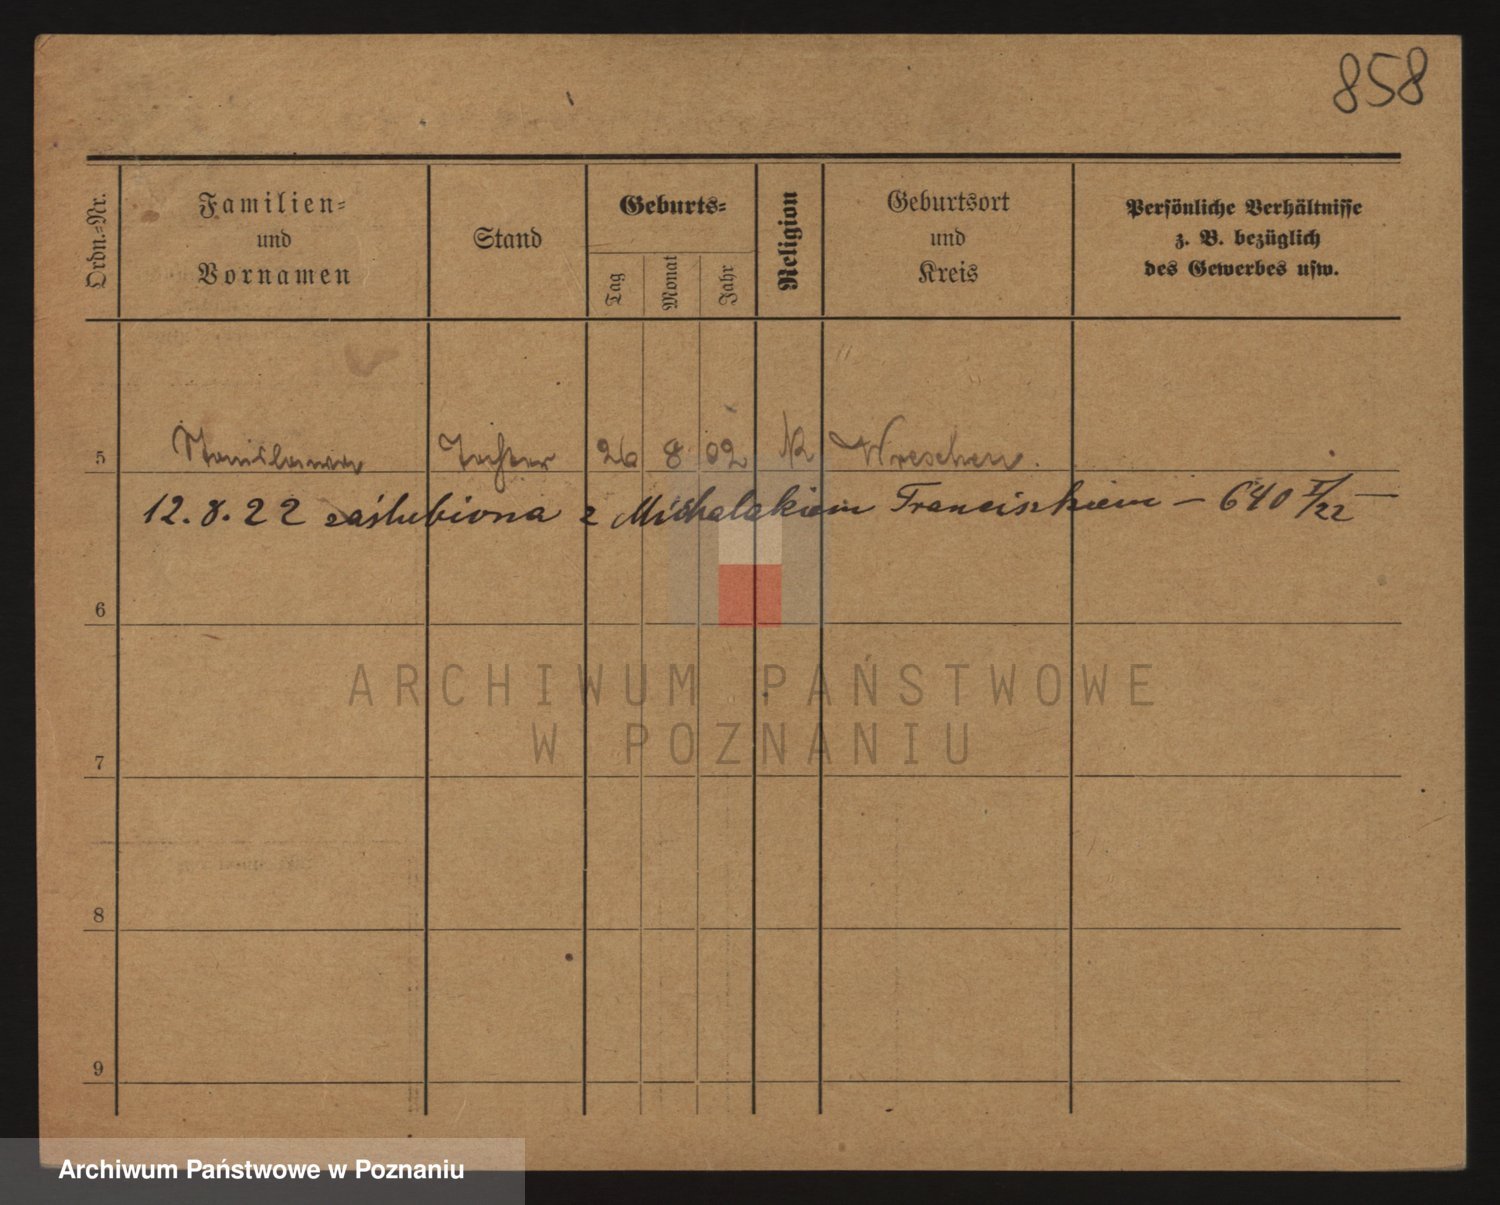 858
Ordn.-Nr.
Familien-
und
Vornamen
Stand
Geburts-
Tag
Monat
Jahr
Religion
Geburtsort
und
Kreis
Persönliche Verhältnisse
z. B. bezüglich
des Gewerbes usw.
5 Stanislawa Tochter 26 8 02 K Wreschen.
12.8.22 zaślubiona z Michalakiem Franciszkiem – 640 I/22 –
6
7
8
9
ARCHIWUM PAŃSTWOWE
W POZNANIU
Archiwum Państwowe w Poznaniu